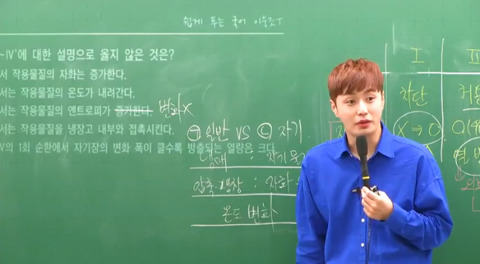 쉽게 푸는 국어 이승조T
~Ⅳ'에 대한 설명으로 옳지 않은 것은?
서 작용물질의 자화는 증가한다.
서는 작용물질의 온도가 내려간다.
서는 작용물질의 엔트로피가 증가한다. 변화X
서는 작용물질을 냉장고 내부와 접촉시킨다.
Ⅳ의 1회 순환에서 자기장의 변화 폭이 클수록 방출되는 열량은 크다.
㉠ 일반 VS ㉡ 자기
냉매
압축 팽창 : 자화
온도 변화
Ⅰ
차단
X → 0